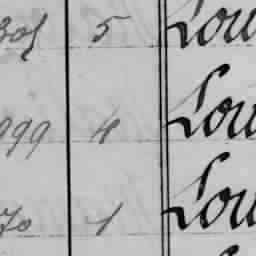 305 5 Lou
999 4 Lou
70 1 Lou